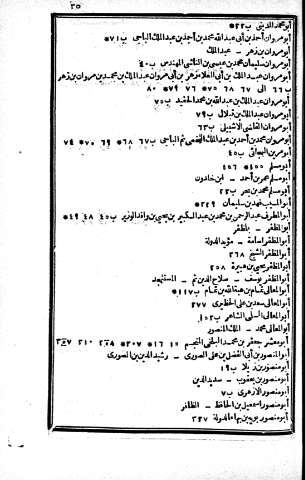 ٣٥
أبو محمد المدينى ب٢٢*
أبو مروان أحمد بن أبى عبد الله محمد بن أحمد بن عبد الملك الباجى ب٧١*
أبو مروان بن زهر — عبد الملك
أبو مروان سليمان بن محمد بن عيسى بن الناشى المهندس ب٤٠
أبو مروان عبد الملك بن أبى العلاء زهر بن أبى مروان عبد الملك بن محمد بن مروان بن زهر
ب٦٦ الى ٦٧ ٦٨ ٧٥* ٧٦ ٧٩* ٨٠
أبو مروان عبد الملك بن عبد الله بن محمد الحفيد ب٧٥
أبو مروان عبد الملك بن قبلال ب٧٩
أبو مروان القاضى الاشبيلى ب٦٣
أبو مروان محمد بن أحمد بن عبد الملك اللخمى ثم الباجى ب٦٧ ٦٨* ٦٩ ٧٠* ٧٤
أبو مزين البجائى ب٤٥
أبو مسلم ٤٥٥* ٤٥٦
أبو مسلم عمر بن أحمد — ابن خلدون
أبو مسلم محمد بن بحر ب٢٢
أبو المسيب فهد بن سليمان ٢٢٩*
أبو المطرف عبد الرحمن بن محمد بن عبد الكبير بن يحيى بن وافد الوزير ب٤٥ ٤٨ ٤٩*
أبو المظفر — بلمظفر
أبو المظفر اسامة — مؤيد الدولة
أبو المظفر الشيخ ٢٦٨
أبو المظفر يحيى بن هبيرة ٢٥٨
أبو المظفر يوسف — صلاح الدين ثم — المستنجد
أبو المعالى تمام بن هبة الله بن تمام ب١١٧*
أبو المعالى سعد بن على الحظيرى ٢٧٧
أبو المعالى السلمى الشاعر ب١٥٢
أبو المعالى محمد — الملك المنصور
أبو معشر جعفر بن محمد البلخى المنجم ١٥ ١٦* ٢٠٧* ٢٠٨ ٢١٠ ٣٥٧
أبو المنصور بن أبى الفضل بن على الصورى — رشيد الدين بن الصورى
أبو منصور بن زيلا ب١٩
أبو منصور بن يعقوب — سديد الدين
أبو منصور الازهرى ب٧
أبو منصور اسمعيل بن الحافظ — الظافر
أبو منصور بويه بن بهاء الدولة ٣٢٧